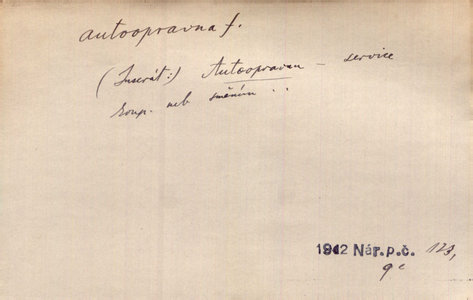 autoopravna f.
(Inserát:) Autoopravnu – service
koup. neb směním ..
1942 Nár.p.č. 123,
9c